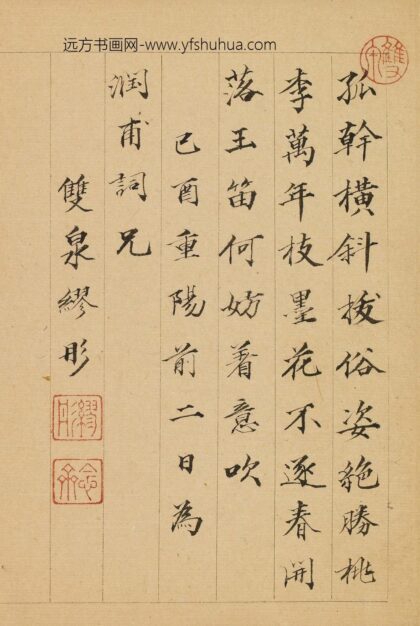 远方书画网-www.yfshuhua.com
孤幹橫斜拔俗姿絶勝桃
李萬年枝墨花不逐春開
落玉笛何妨著意吹
己酉重陽前二日為
潤甫詞兄
雙泉繆彤